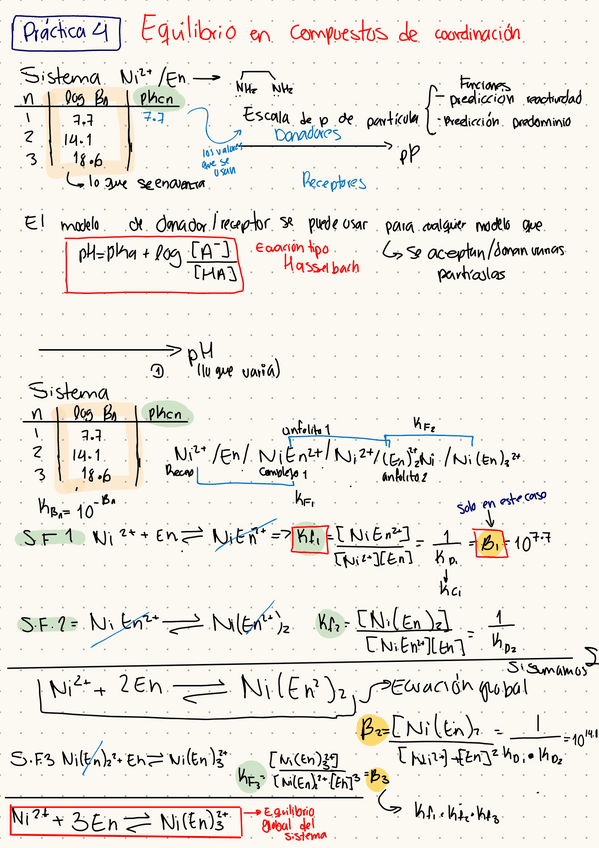 Práctica 4 Equilibrio en compuestos de coordinación
Sistema Ni²⁺/En → NH₂ NH₂
n log Bn pkcn
1 7.7 7.7
2 14.1
3 18.6
↳ lo que se encuentra
los valores que se usan
Escala de p de partícula
Donadores
→ pP
Receptores
Funciones
- Predicción reactividad
- Predicción predominio
El modelo de donador/receptor se puede usar para cualquier modelo que
↳ Se aceptan/donan varias partículas
pH=pka + log [A⁻]/[HA]
Ecuación tipo Hasselbach
→ pH
① (lo que varía)
Sistema
n log Bn pkcn
1 7.7
2 14.1
3 18.6
anfolito 1 KF₂
Ni²⁺/En/ NiEn²⁺/Ni²⁺/(En)₂²⁺Ni /Ni(En)₃²⁺
Complejo 1 anfolito 2
KF₁
KBn = 10^-Bn
Solo en este caso
S.F 1 Ni²⁺ + En ⇌ NiEn²⁺ => Kf₁ = [NiEn²⁺]/[Ni²⁺][En] = 1/KD₁ = B₁ = 10^7.7
↓
kci
S.F.2 = NiEn²⁺ ⇌ Ni(En²⁺)₂ Kf₂ = [Ni(En)₂]/[NiEn²⁺][En] = 1/KD₂
Si sumamos
Ni²⁺ + 2En ⇌ Ni(En²)₂ → Ecuación global
B₂ = [Ni(En)₂/[Ni²⁺]+[En]² = 1/KD₁•KD₂ = 10^14.1
S.F.3 Ni(En)₂²⁺ + En ⇌ Ni(En)₃²⁺ KF₃ = [Ni(En)₃²⁺]/[Ni(En)₂²⁺[En]³ = B₃
Kf₁ · Kf₂ · Kf₃
Ni²⁺ + 3En ⇌ Ni(En)₃²⁺ → Equilibrio global del sistema